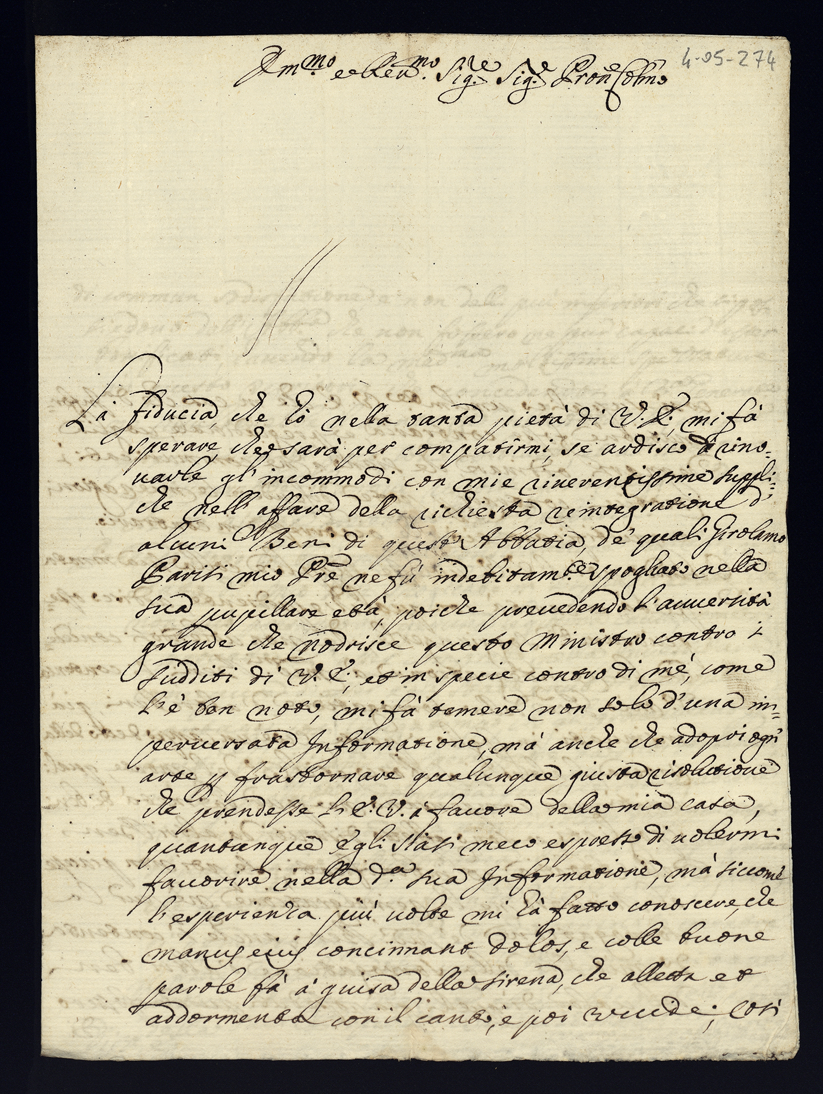 Em.mo e Reu.mo Sig.re Sig.re Pron Colmo
4-05-274
La fiducia, che hò nella tanta pietà di V. E. mi fà
sperare, che sarà per compatirmi, se ardisco di rino-
uarle gl'incommodi con mie riuerentissime suppli-
che nell'affare della richiesta reintegratione d'
alcuni Beni di questa Abbatia, de quali Girolamo
Pariti mio Pre ne fù indebitam.te spogliato nella
sua pupillare età, poiche preuedendo l'auuersità
grande che nodrisce questo Ministro contro i
sudditi di V. E., et in specie contro di mè, come
l'è ben noto, mi fà temere non solo d'una im-
peruersata Informatione, mà anche che adopri ogn'
arte p frastornare qualunque giusta risolutione
che prendesse l'E. V. à fauore della mia casa,
quantunque egli siasi meco espresso di uolermi
fauorire nella d.a sua Informatione, mà siccome
l'esperienza più uolte mi hà fatto conoscere, che
manus eius concinnant dolos, e colle buone
parole fà à guisa della sirena, che alletta et
addormenta con il canto, e poi uccide; Così